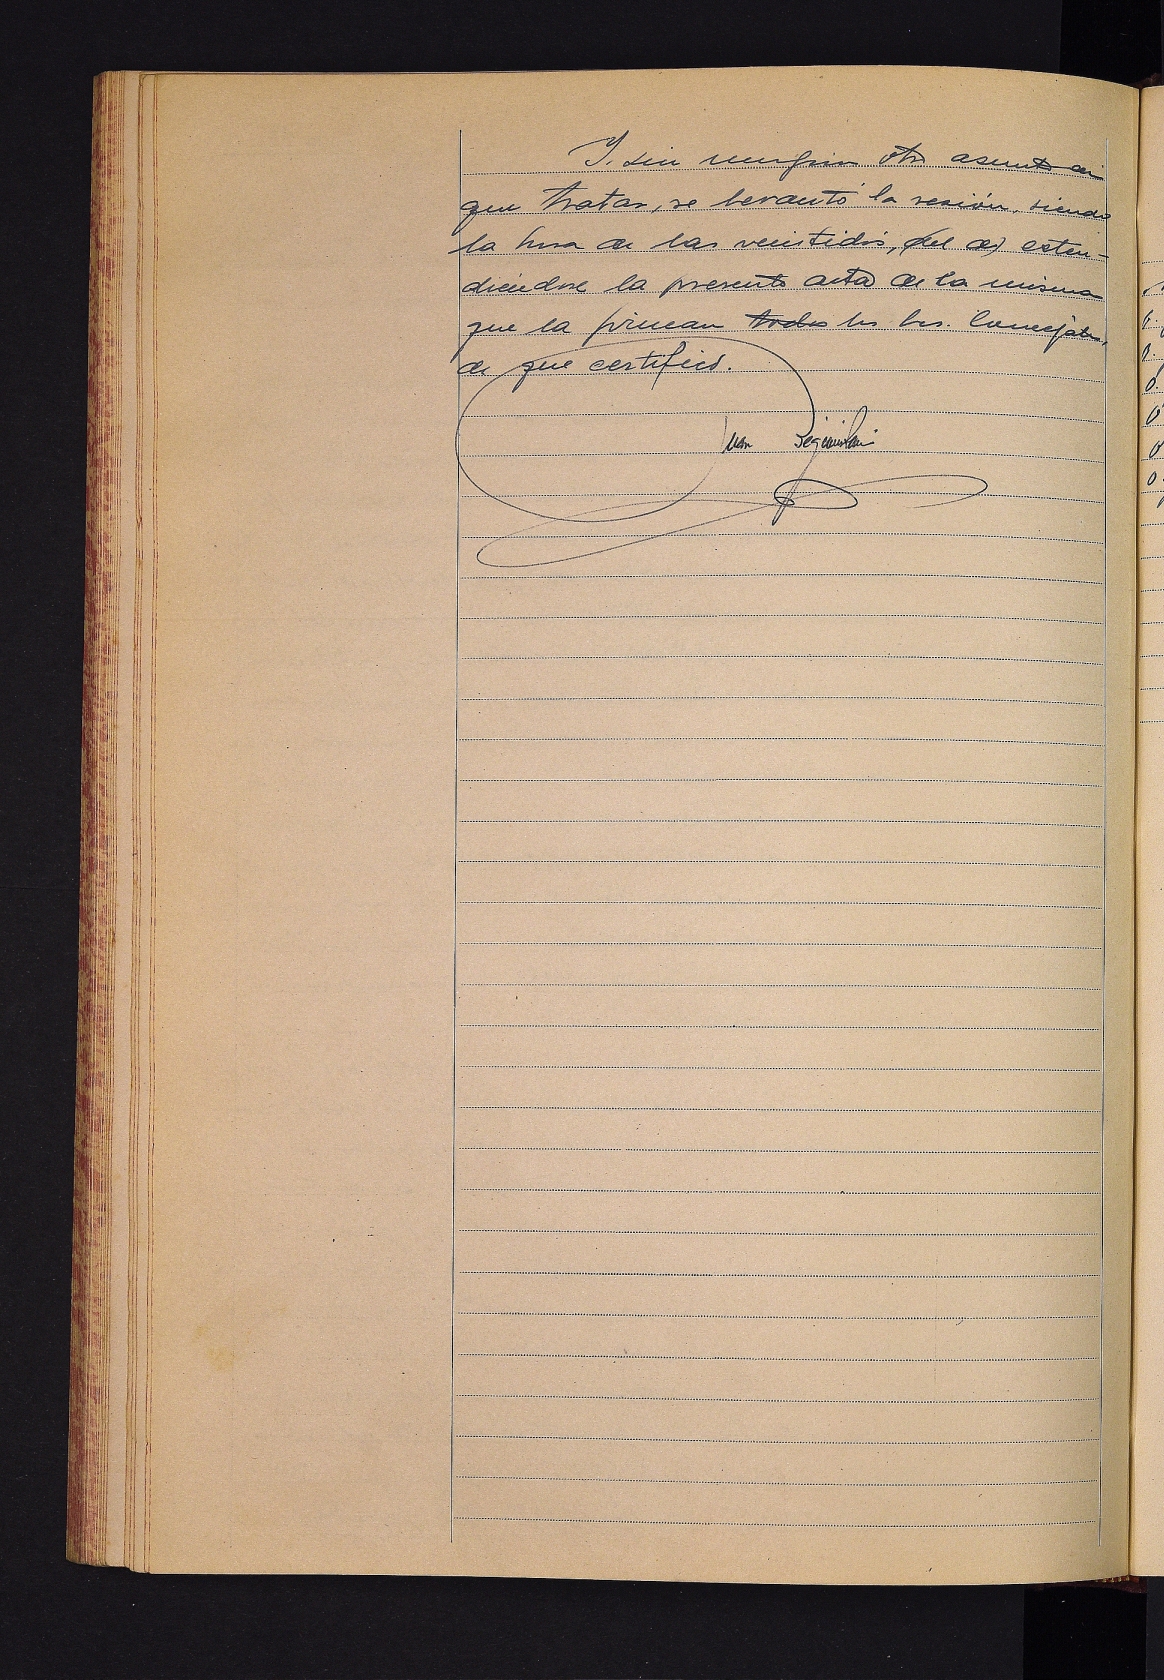 Y sin ningún otro asunto de
que tratar, se levantó la sesión, siendo
la hora de las veintidós, exten-
diéndose la presente acta de la misma
que la firman todos los Srs. Concejales,
de que certifico.
Juan